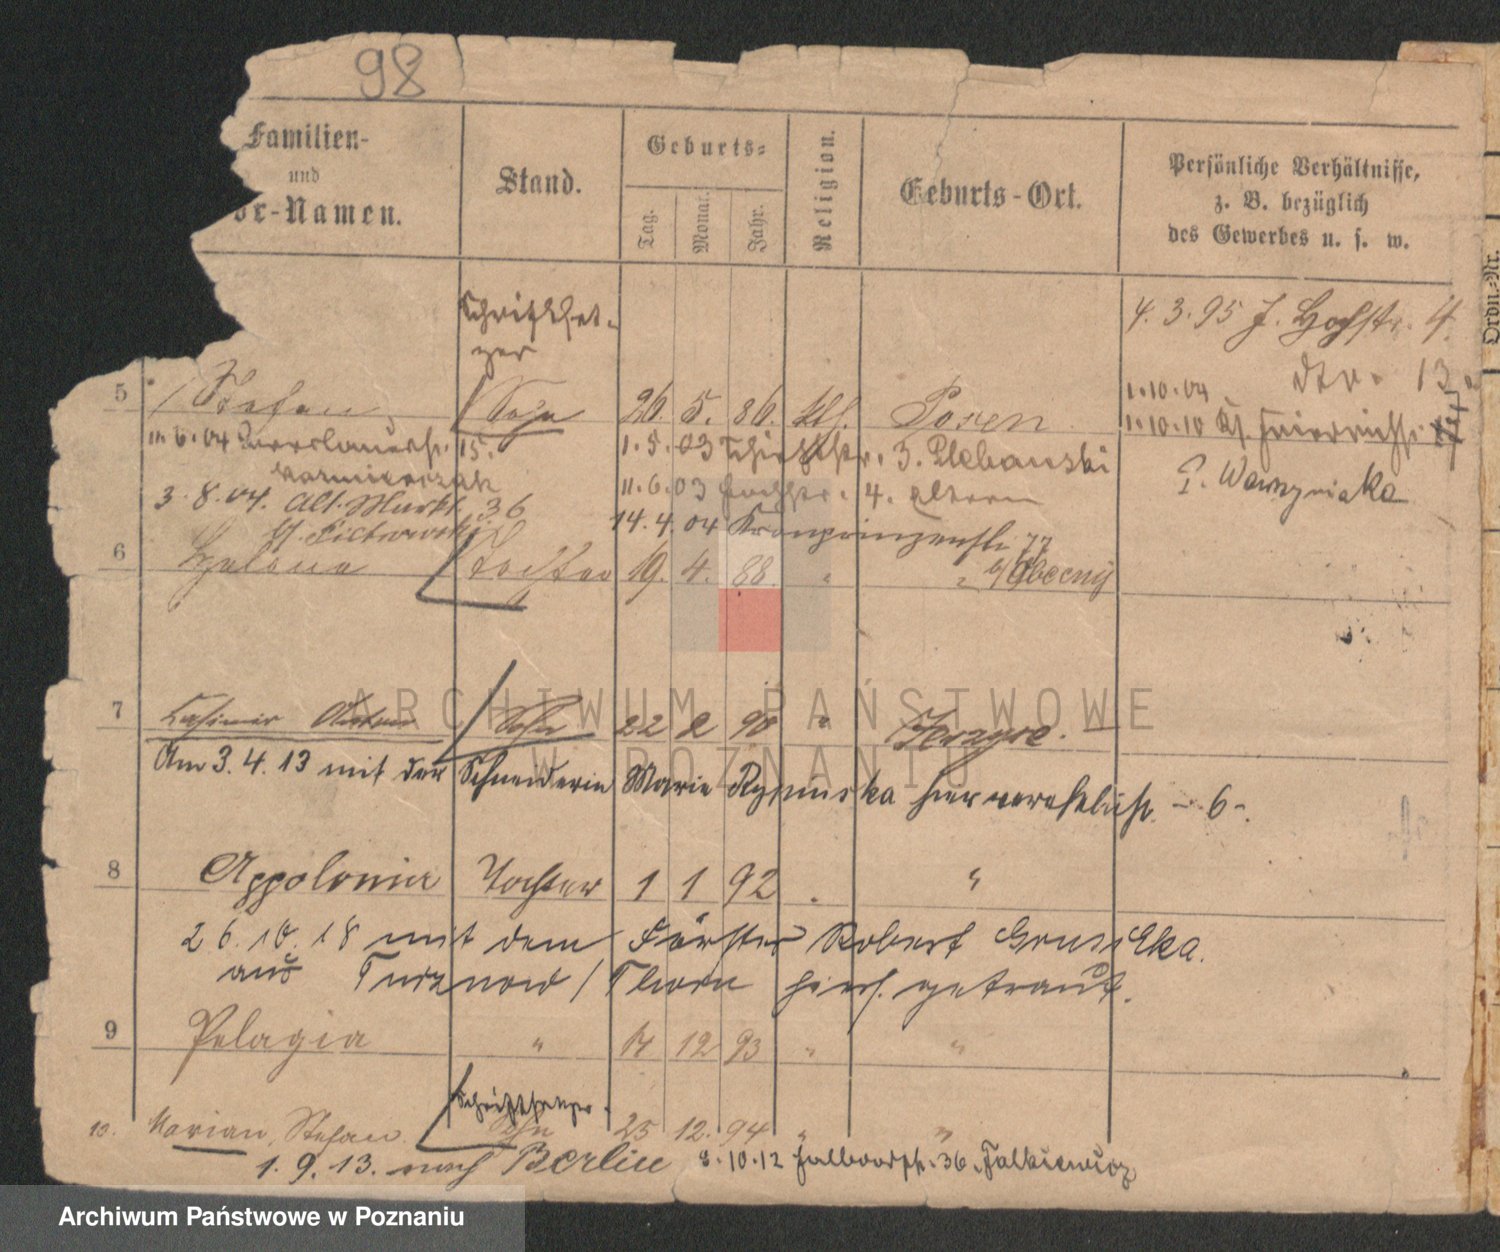 98
Familien-
und
or-Namen.
Stand.
Geburts-
Tag.
Monat.
Jahr.
Religion.
Geburts-Ort.
Persönliche Verhältnisse,
z. B. bezüglich
des Gewerbes u. s. w.
Ordn.-Nr.
Schriftset-
zer
4. 3. 95 J. Hochstr. 4
13
5 Stefan Sohn 26. 5. 86. kth. Posen
1.10.04
1.10.10
11.6.04 15. 1.5.03 3. Plebanski
Kazmierczak
11.6.03 4. Eltern
3.8.04. Alt. Markt 36
b/ Piotrowski
14.4.04 Kronprinzenstr. 77
6 Helena Tochter 19. 4. 88. " " b/ Obecny
7 Kasimir Sohn 22 2 90 " Jerzyce.
Am 3.4.13 mit der Schneiderin Marie hier verehelicht - 6 -.
8 Appolonia Tochter 1 1 92 " "
26.10.18 mit dem Förster Robert
aus Turznow / Thorn hier. getraut.
9 Pelagia " 17 12 93 " "
Schriftsetzer.
10. Marian, Stefan Sohn 25 12. 94 " "
1.9.13. nach Berlin 8.10.12 36. Falkiewicz
ARCHIWUM PAŃSTWOWE
W POZNANIU
Archiwum Państwowe w Poznaniu